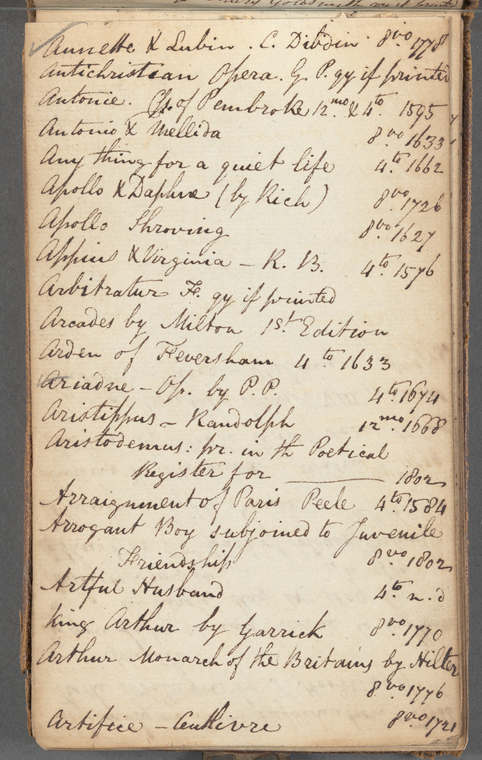 Annette & Lubin. C. Dibdin 8vo 1778
Antichristian Opera. G. P. qy if printed
Antonie. Cs. of Pembroke 12mo & 4to. 1595
Antonio & Mellida 8vo 1633
Any thing for a quiet life 4to. 1662
Apollo & Daphne (by Rich) 8vo 1726
Apollo Shroving 8vo. 1627
Appius & Virginia – R. B. 4to. 1576
Arbitrator F. qy if printed
Arcades by Milton 1st Edition
Arden of Feversham 4to 1633
Ariadne – Op. by P. P. 4to. 1674
Aristippus – Randolph 12mo. 1668
Aristodemus: pr. in th Poetical
Register for ——— 1802
Arraignment of Paris Peele 4to. 1584
Arrogant Boy subjoined to Juvenile
Friendship 8vo 1802
Artful Husband 4to. n. d
King Arthur by Garrick 8vo 1770
Arthur Monarch of the Britains by Hilter
8vo 1776
Artifice – Centlivre 8vo 1721